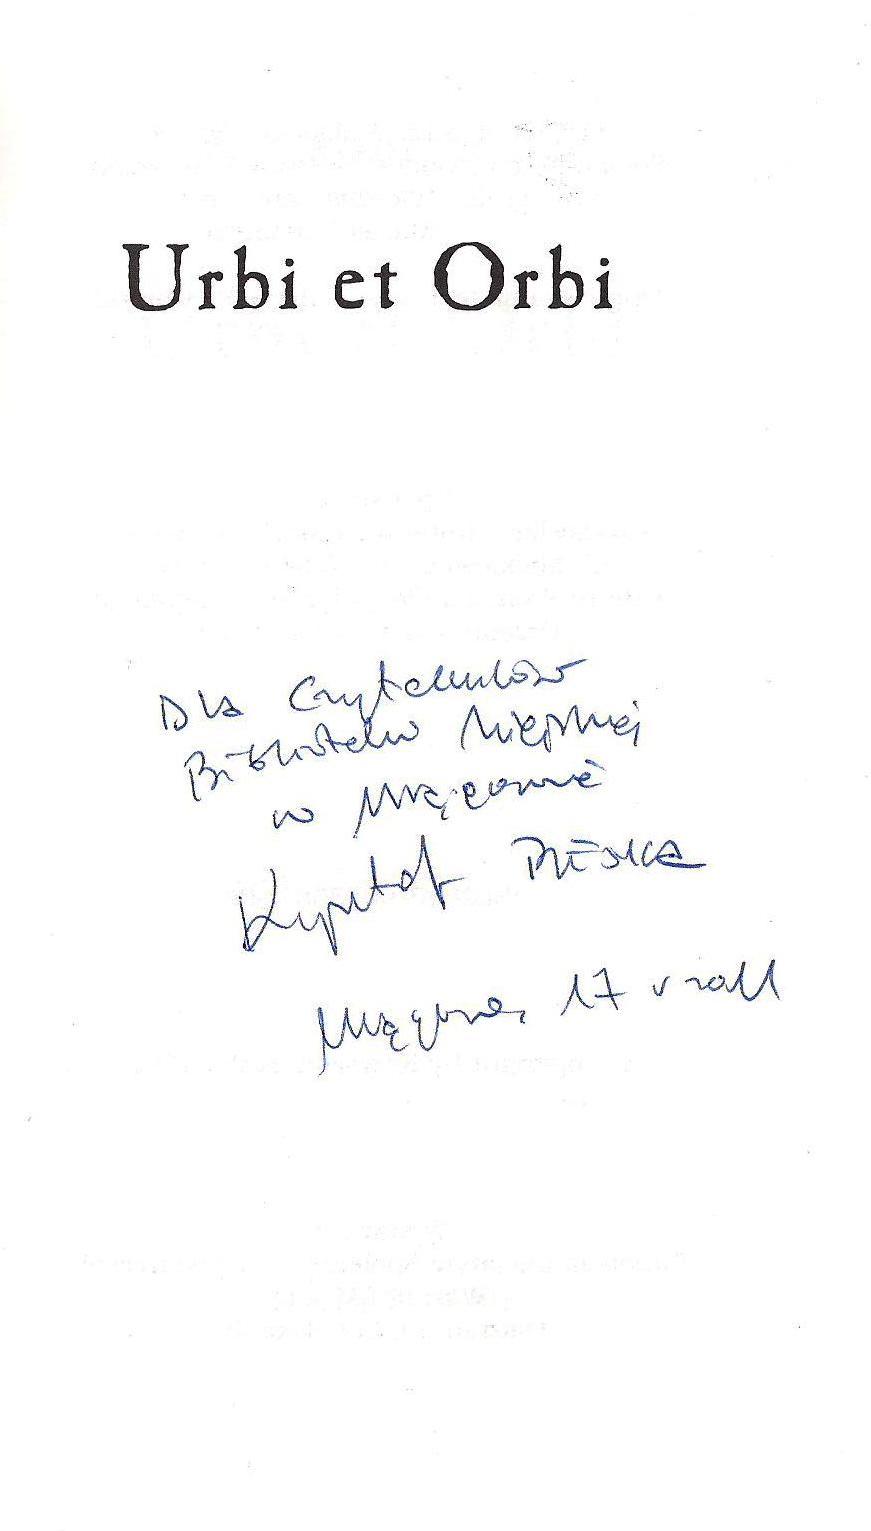 Urbi et Orbi
Dla Czytelników
Biblioteki Miejskiej
w Mrągowie
Krzysztof
Mrągowo, 17 V 2011